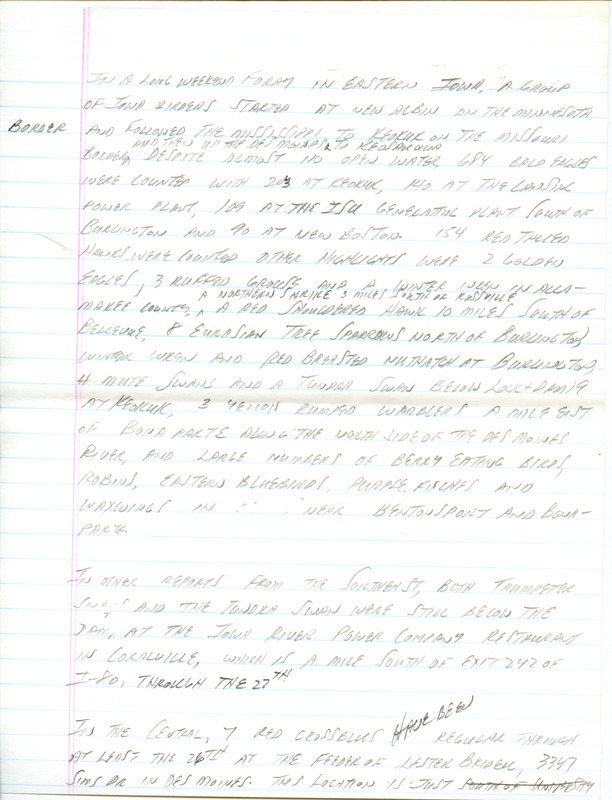 IN A LONG WEEKEND FORAY IN EASTERN IOWA, A GROUP
OF IOWA BIRDERS STARTED AT NEW ALBIN ON THE MINNESOTA
BORDER AND FOLLOWED THE MISSISSIPPI TO KEOKUK ON THE MISSOURI
AND THEN UP THE DES MOINES TO KEOSAUQUA
BORDER, DESPITE ALMOST NO OPEN WATER, 684 BALD EAGLES
WERE COUNTED WITH 203 AT KEOKUK, 140 AT THE LANSING
POWER PLANT, 109 AT THE ISU GENERATING PLANT SOUTH OF
BURLINGTON AND 90 AT NEW BOSTON. 154 RED TAILED
HAWKS WERE COUNTED OTHER HIGHLIGHTS WERE 2 GOLDEN
EAGLES, 3 RUFFED GROUSE AND A WINTER WREN IN ALLA-
A NORTHERN SHRIKE 3 MILES SOUTH OF ROSSVILLE
MAKEE COUNTY, A RED SHOULDERED HAWK 10 MILES SOUTH OF
BELLEVUE, 8 EURASIAN TREE SPARROWS NORTH OF BURLINGTON,
WINTER WREN AND RED BREASTED NUTHATCH AT BURLINGTON,
4 MUTE SWANS AND A TUNDRA SWAN BELOW LOCK+DAM 19
AT KEOKUK, 3 YELLOW RUMPED WARBLERS A MILE EAST
OF BONAPARTE ALONG THE NORTH SIDE OF THE DES MOINES
RIVER, AND LARGE NUMBERS OF BERRY EATING BIRDS,
ROBINS, EASTERN BLUEBIRDS, PURPLE FINCHES AND
WAXWINGS IN NEAR BENTONSPORT AND BONA-
PARTE
IN OTHER REPORTS FROM THE SOUTHEAST, BOTH TRUMPETER
AND THE TUNDRA SWAN WERE STILL BELOW THE
DAM, AT THE IOWA RIVER POWER COMPANY RESTAURANT
IN CORALVILLE, WHICH IS A MILE SOUTH OF EXIT 242 OF
I-80, THROUGH THE 27TH
IN THE CENTRAL, 7 RED CROSSBILLS HAVE BEEN REGULAR THROUGH
AT LEAST THE 26TH AT THE FEEDER OF LESTER 3347
SIMS DR IN DES MOINES. THIS LOCATION IS JUST SOUTH OF UNIVERSITY